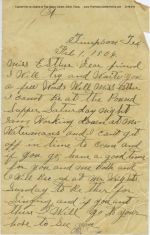 Timpson Tex
Feb 1, 1906
Miss Esther Dear friend
I Will try and Write you
a few Words Well Miss Esther
I cant be at the Pound
Supper Saturday night
I am Working down at Mr
Watermans and I Cant get
off in time to come and
if you go have a good time
for you and me both and
I Will be up at Mr Wrights
Sunday to be there for
Singing and if you aint
there I Will go to your
to see you